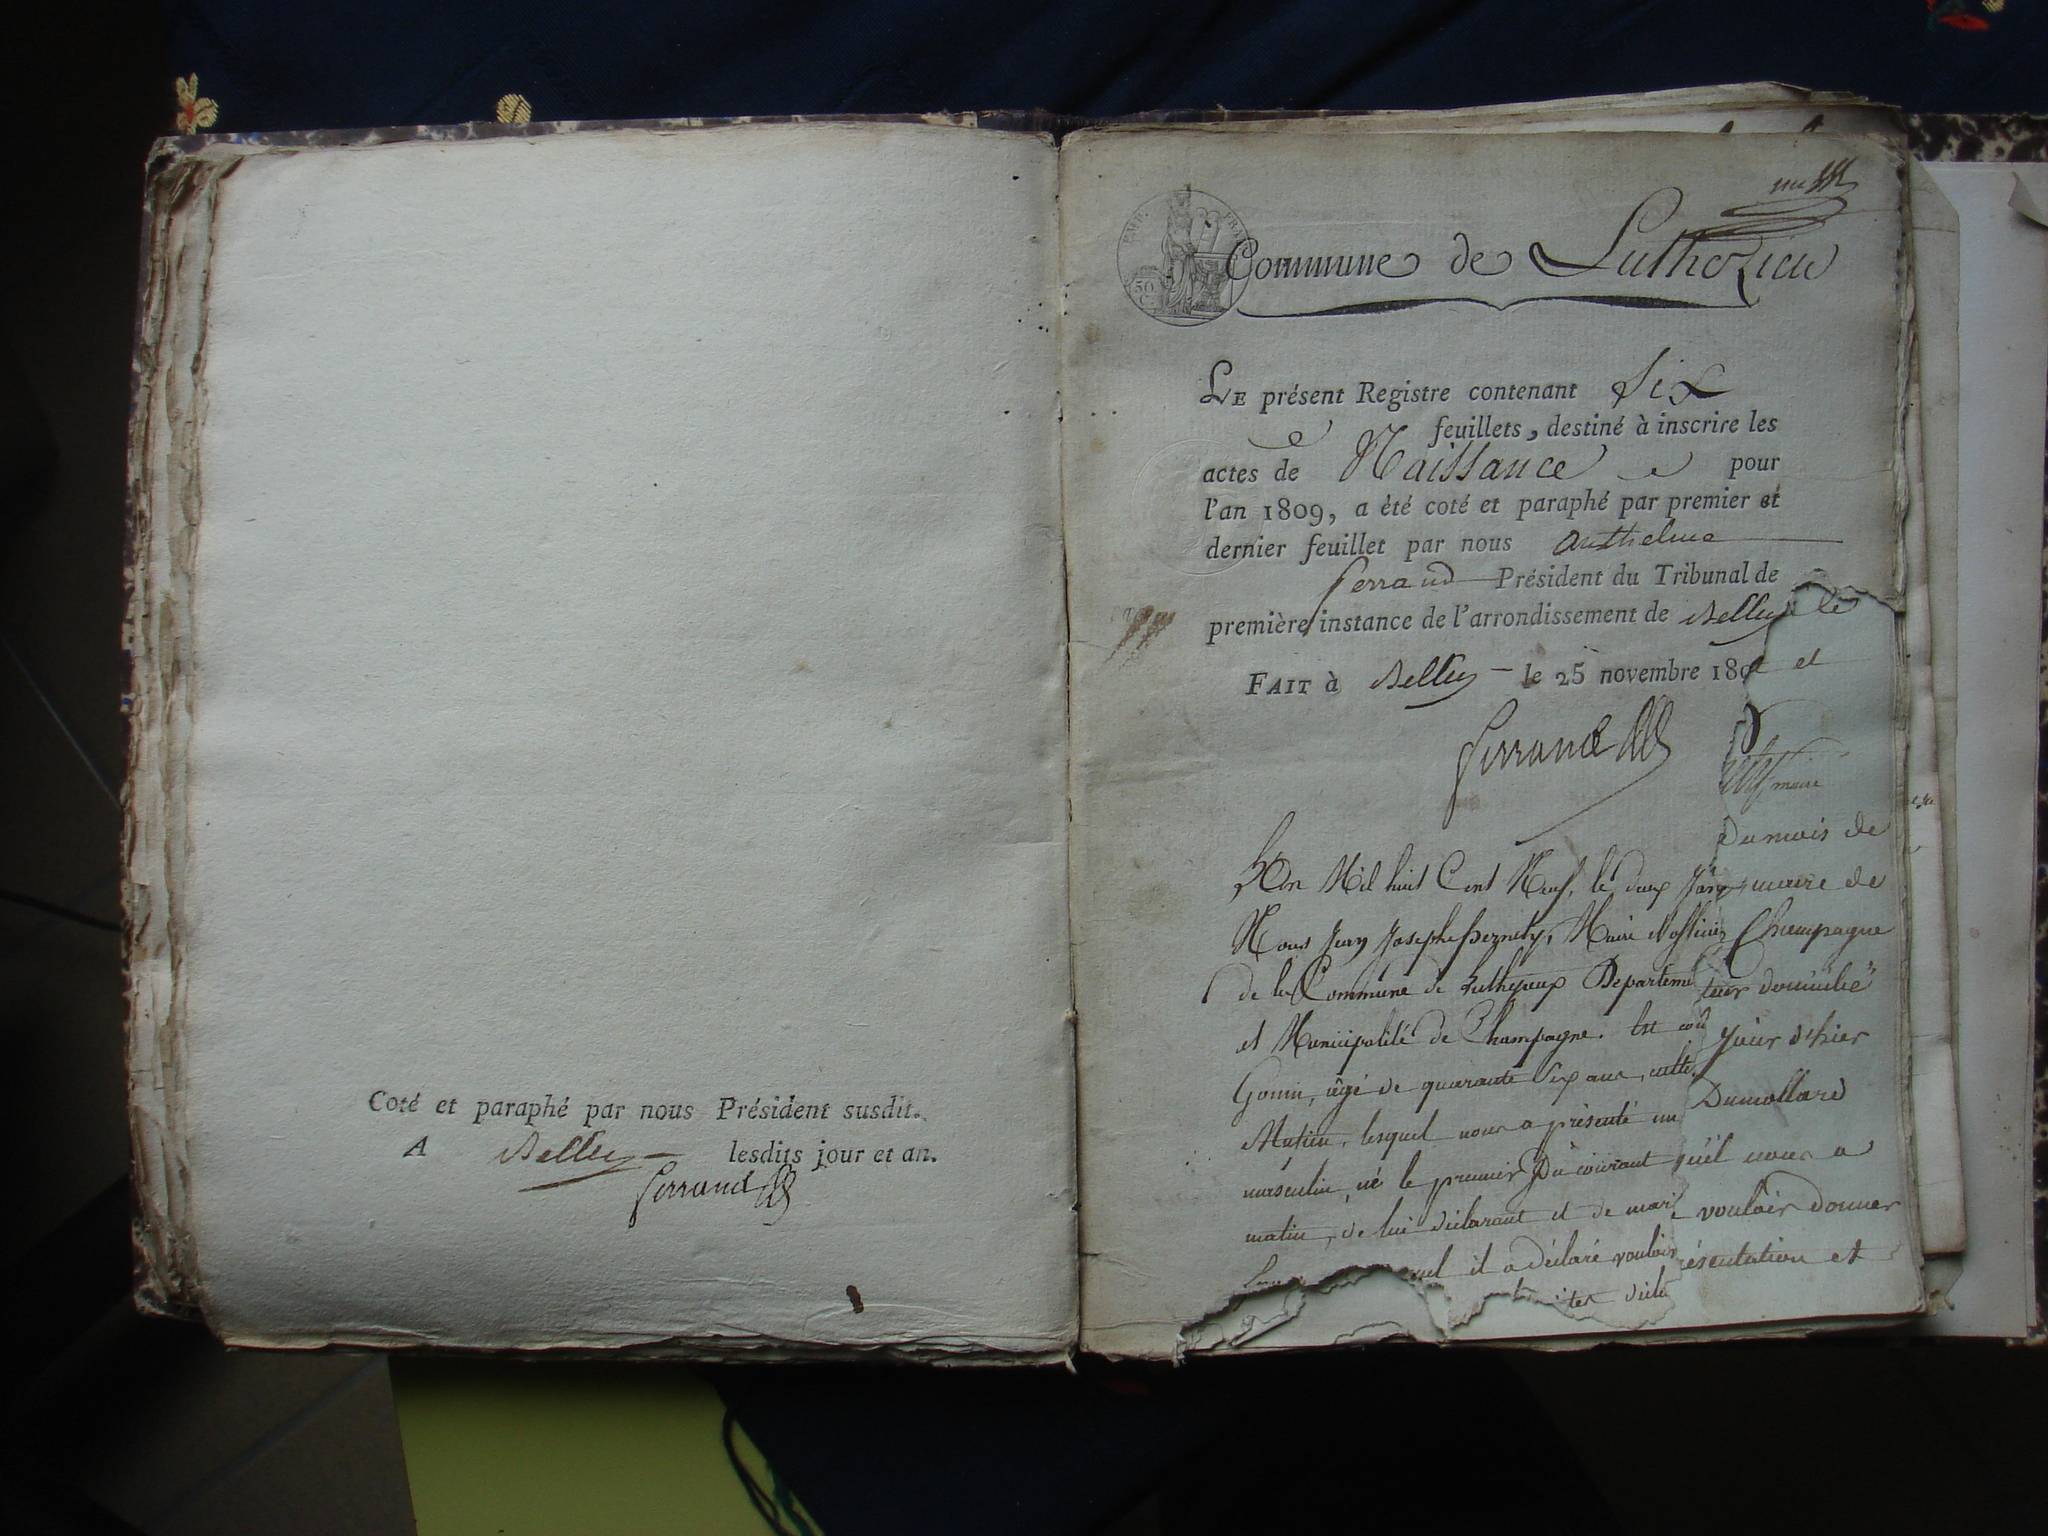 Coté et paraphé par nous Président susdit.
A Belley lesdits jour et an.
Ferrand
Commune de Luthezieu
50 C.
LE présent Registre contenant Six
feuillets, destiné à inscrire les
actes de Naissance pour
l'an 1809, a été coté et paraphé par premier et
dernier feuillet par nous Anthelme
Ferrand Président du Tribunal de
première instance de l'arrondissement de Belley le
FAIT à Belley le 25 novembre 180 et
Ferrand
maire
Du mois de
L'an Mil huit Cent Neuf, le deux Janv maire de
Nous Jean Joseph Maire d'officier Champagne
de la Commune de Département domicilié
et Municipalité de Champagne. Est jour d'hier
Gonin, âgé de quarante Six ans, Dumollard
lesquel nous a présenté un
masculin, né le premier Du courant qu'il nous a
matin, de lui déclarant et de mari vouloir donner
il a déclaré vouloir ésentation et